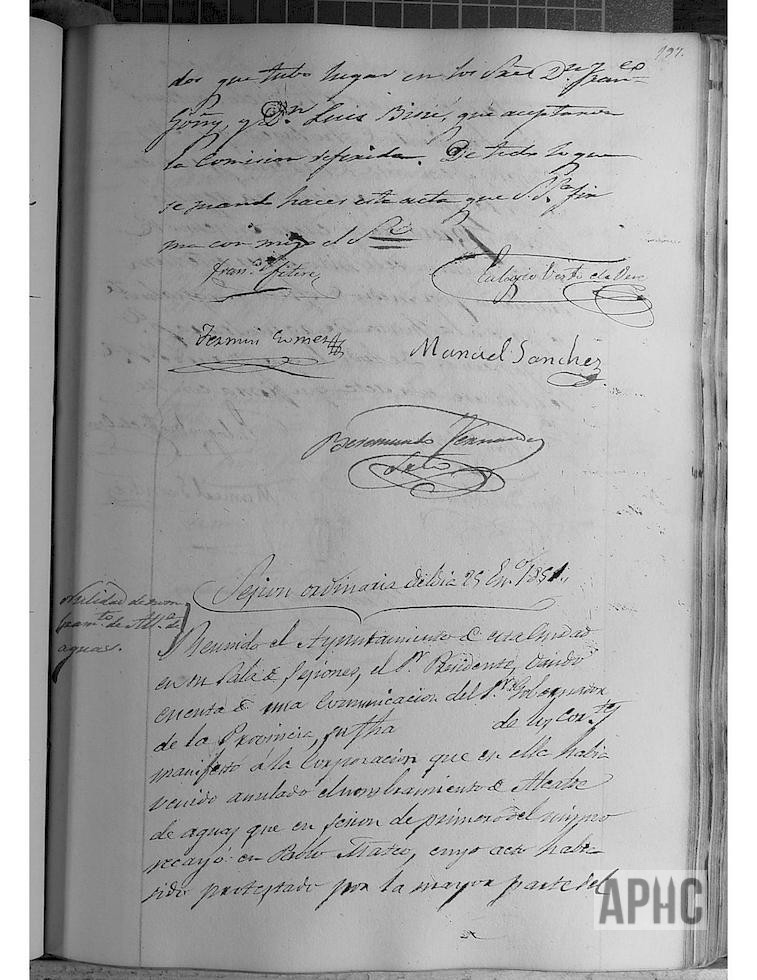 197.
dos que tubo lugar en los Sres Dn Franco
Goñy, y Dn Luis Bisié, que aceptaron
la Comision referida. De todo lo que
se mandó hacer esta acta que S. Sa fir
ma con migo el S
Franco Piterez
Eulogio
Fermin Gomez
Manuel Sanchez
Beremundo Fernandez
Sesion ordinaria del dia 25 Eno 1851.
nulidad de nom
bramto de Alce de
aguas.
Reunido el Ayuntamiento de esta Ciudad
en su Sala de Sesiones, el Sr Presidente, dando
cuenta de una Comunicacion del Sr Gobernador
de la Provincia, su fha de los Corrtes
manifestó á la Corporacion que en ella habia
venido anulado el nombramiento de Alcalde
de aguas que en sesion de primero del mismo
recayó en Pablo Mateo, cuyo acto habia
sido protestado por la mayor parte del
APHC